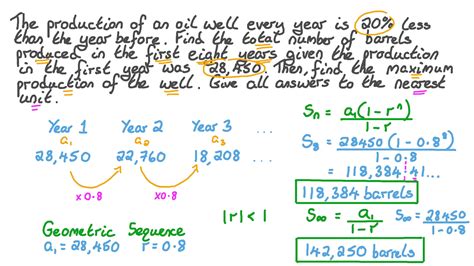 The production of an oil well every year is 20% less
than the year before. Find the total number of barrels
produced in the first eight years given the production
in the first year was 28,450. Then, find the maximum
production of the well. Give all answers to the nearest
unit.
Year 1 Year 2 Year 3 ...
a₁ a₂ a₃
28,450 22,760 18,208 ...
×0.8 ×0.8
Geometric Sequence
a₁ = 28,450 r = 0.8
|r| < 1
Sₙ = a₁(1-rⁿ) / 1-r
S₈ = 28450(1-0.8⁸) / 1-0.8
= 118,384.41...
118,384 barrels
S∞ = a₁ / 1-r S∞ = 28450 / 1-0.8
142,250 barrels